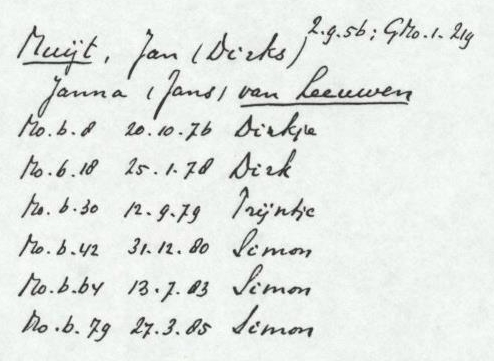 Muijt, Jan (Dirks) 2.g.56; GMo.1.21g
Janna (Jans) van Leeuwen
Mo.6.8 20.10.76 Dirkje
Mo.6.18 25.1.78 Dirk
Mo.6.30 12.9.79 Trijntie
Mo.6.42 31.12.80 Simon
Mo.6.64 13.7.83 Simon
Mo.6.79 27.3.85 Simon